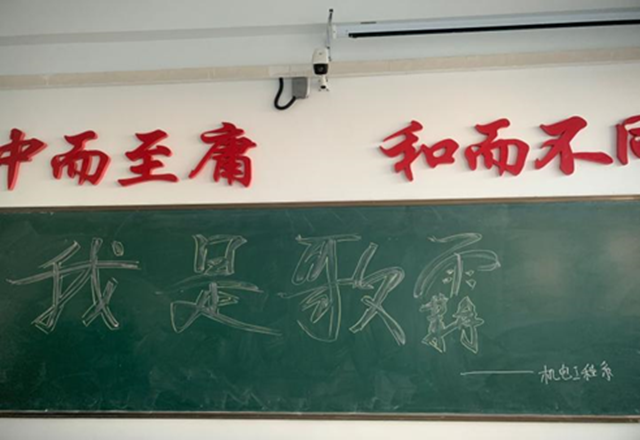 中而至庸 和而不同
我是歌霸
——机电工程系